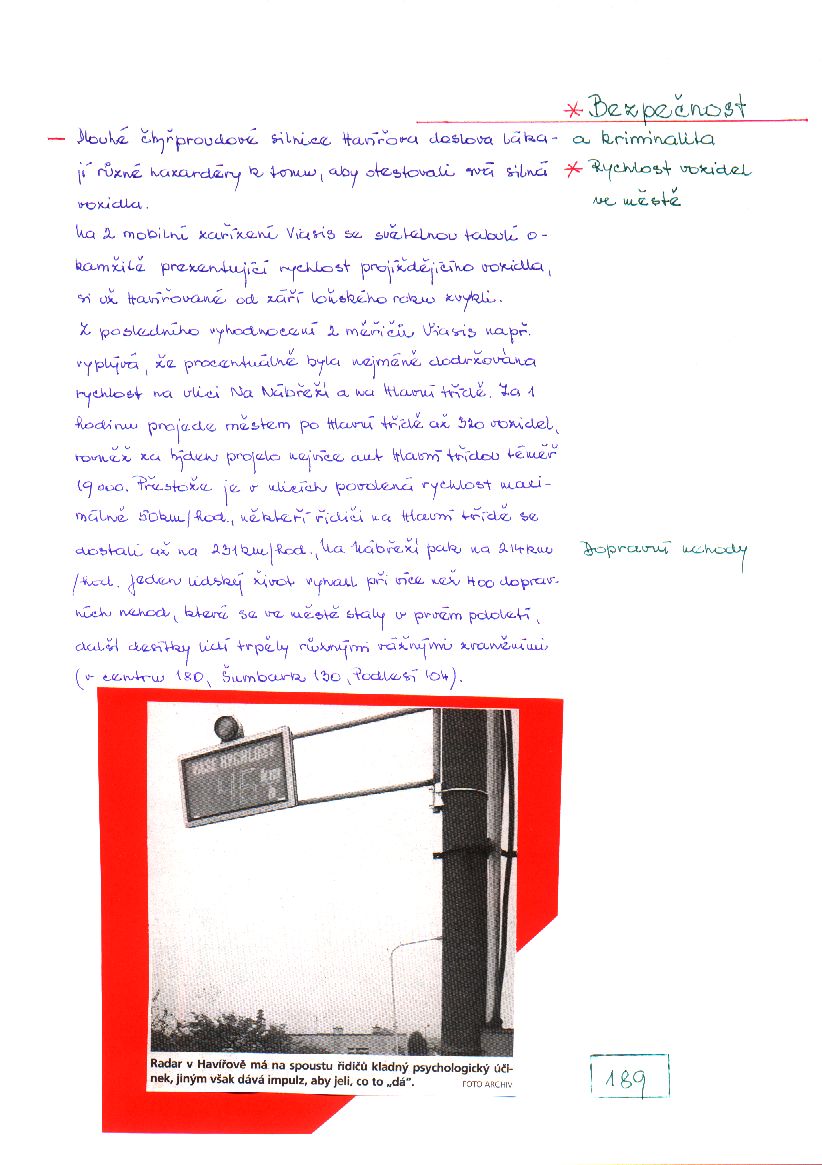 * Bezpečnost
a kriminalita
* Rychlost vozidel
ve městě
— Dlouhé čtyřproudové silnice Havířova doslova láka-
jí různé hazardéry k tomu, aby otestovali svá silná
vozidla.
Na 2 mobilní zařízení Viasis se světelnou tabulí o-
kamžitě prezentující rychlost projíždějícího vozidla,
si už Havířované od září loňského roku zvykli.
Z posledního vyhodnocení 2 měřičů Viasis např.
vyplývá, že procentuálně byla nejméně dodržována
rychlost na ulici Na Nábřeží a na Hlavní třídě. Za 1
hodinu projede městem po Hlavní třídě až 320 vozidel,
rovněž za týden projelo nejvíce aut Hlavní třídou téměř
19 000. Přestože je v ulicích povolená rychlost maxi-
málně 50km/hod., někteří řidiči na Hlavní třídě se
dostali až na 231km/hod., Na Nábřeží pak na 214km
/hod. Jeden lidský život vyhasl při více než 400 doprav-
ních nehod, které se ve městě staly v prvém pololetí,
další desítky lidí trpěly různými vážnými zraněními
(v centru 180, Šumbark 130, Podlesí 104).
Dopravní nehody
VAŠE RYCHLOST
46 km
Radar v Havířově má na spoustu řidičů kladný psychologický úči-
nek, jiným však dává impulz, aby jeli, co to „dá”.
FOTO ARCHIV
189